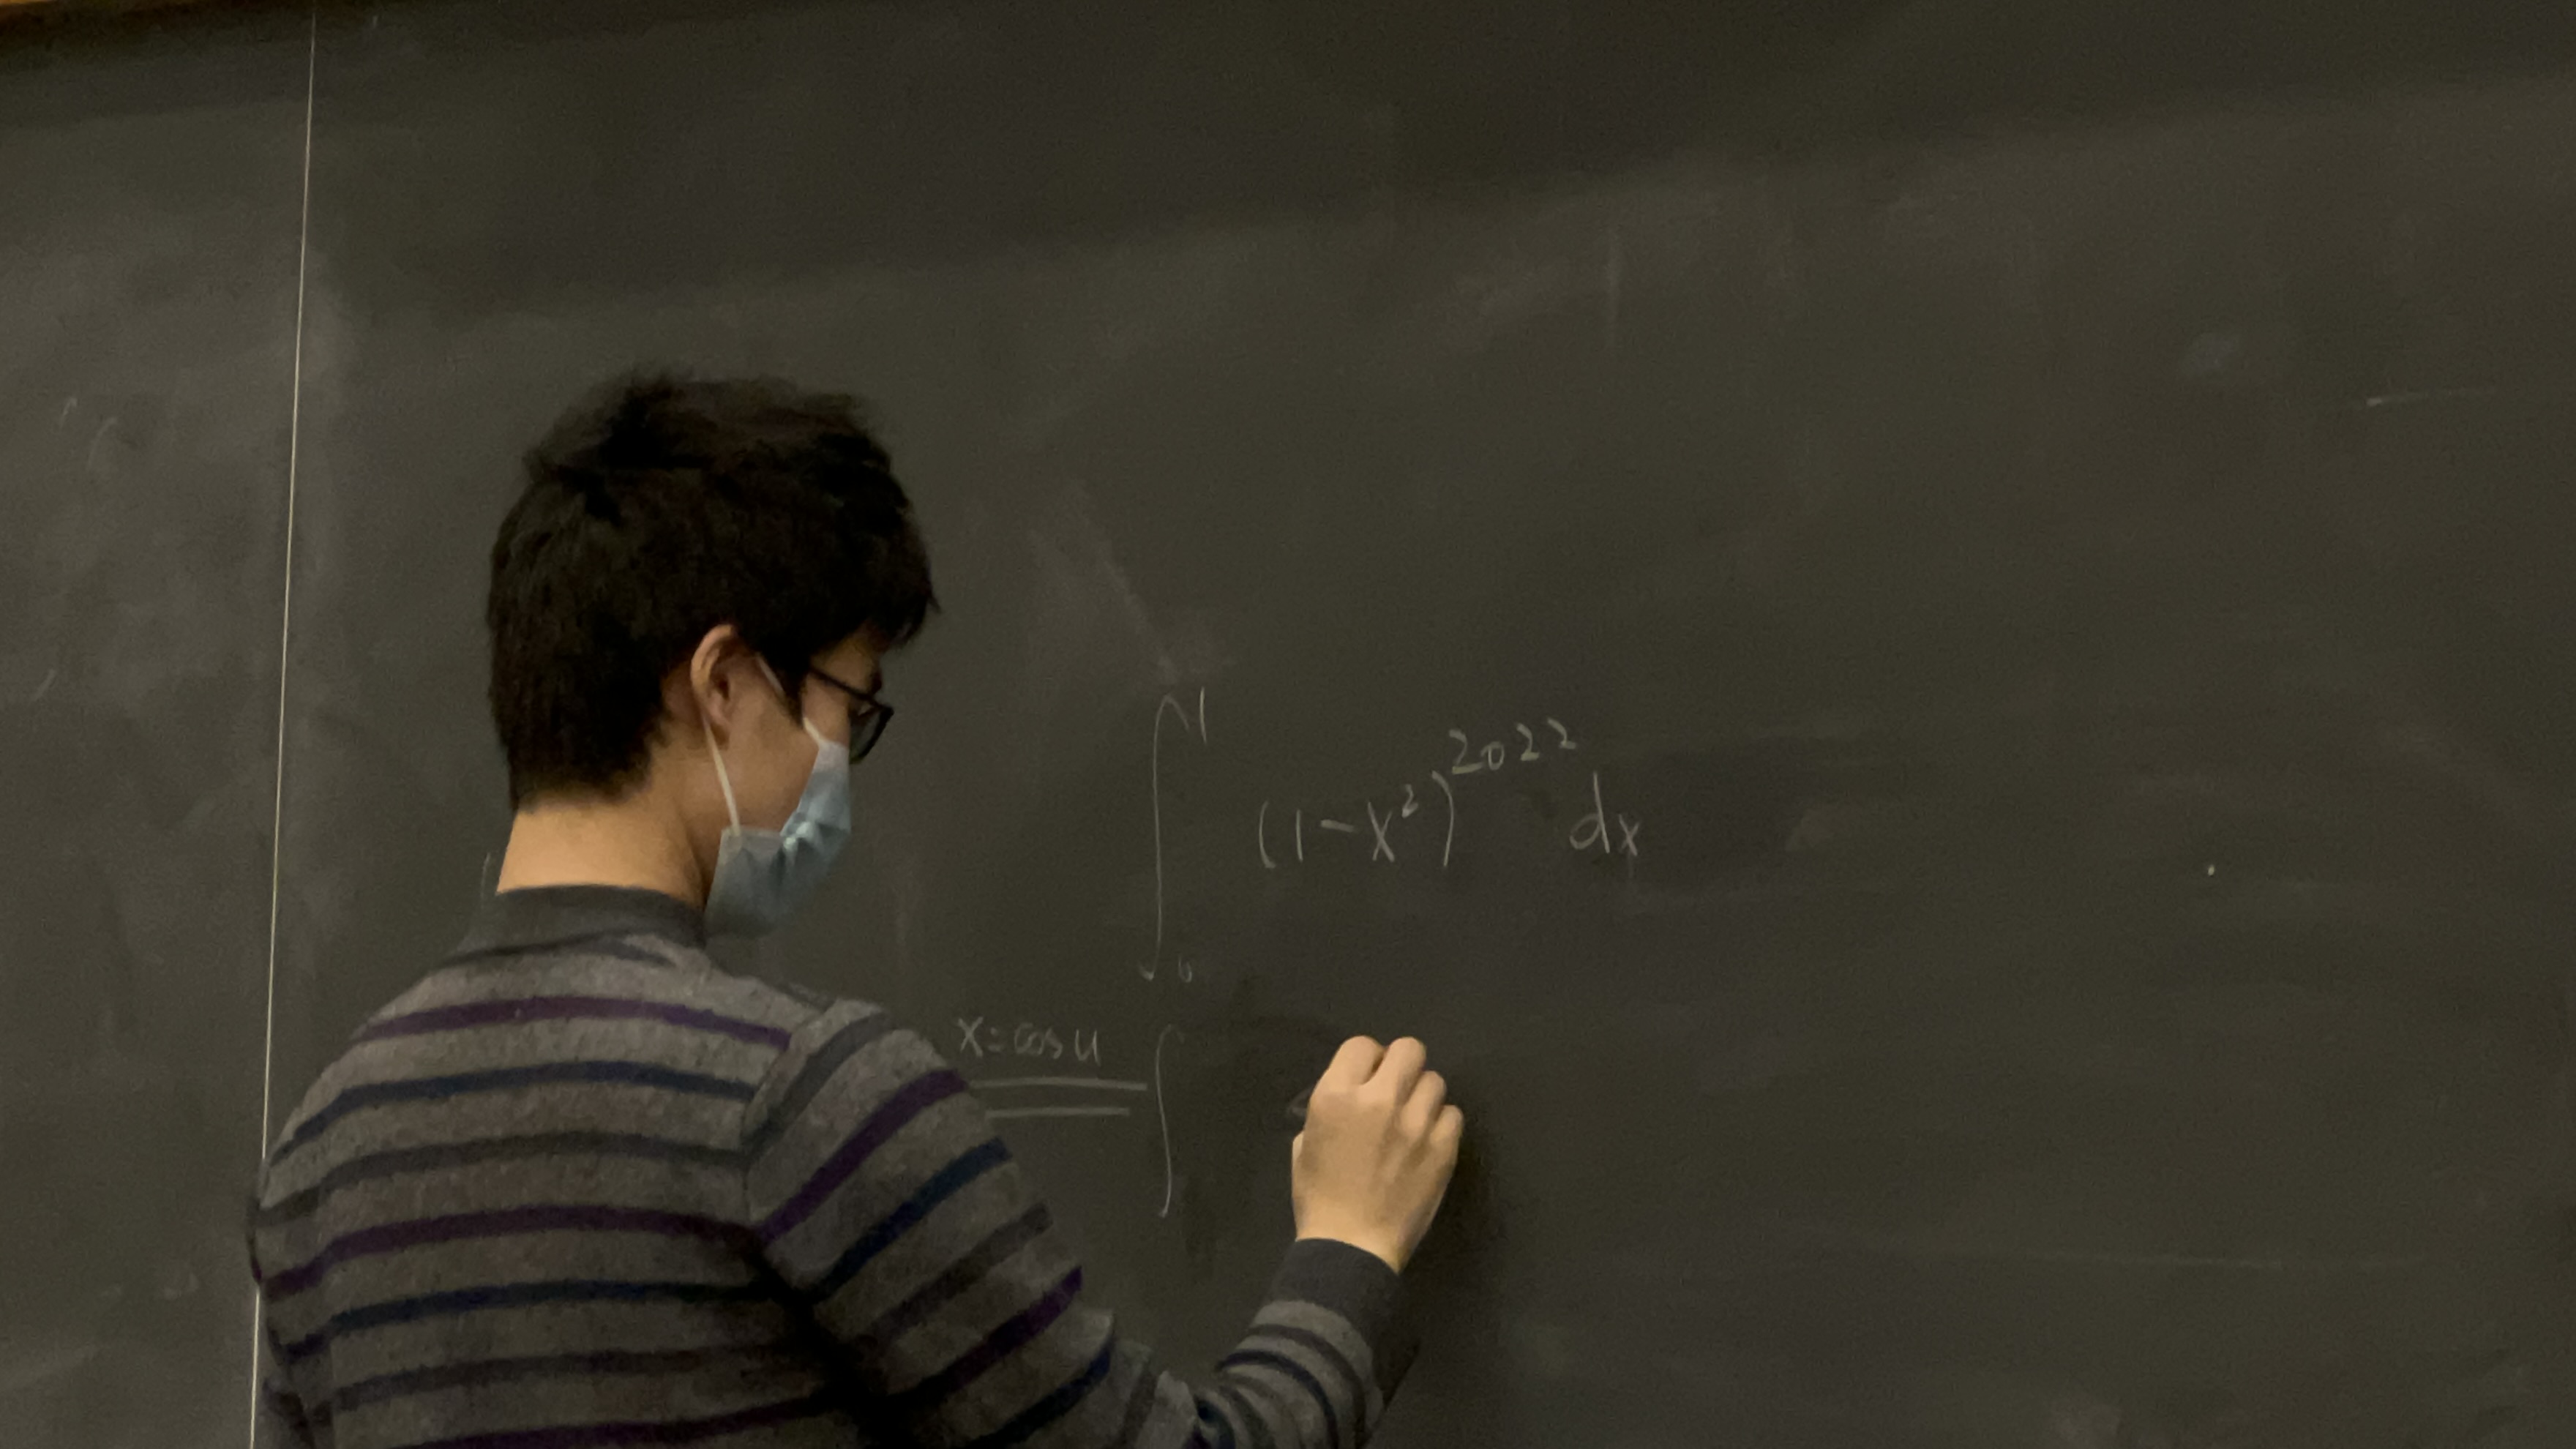 ∫₀¹ (1-x²)²⁰²² dx
x=cos u
═ ∫